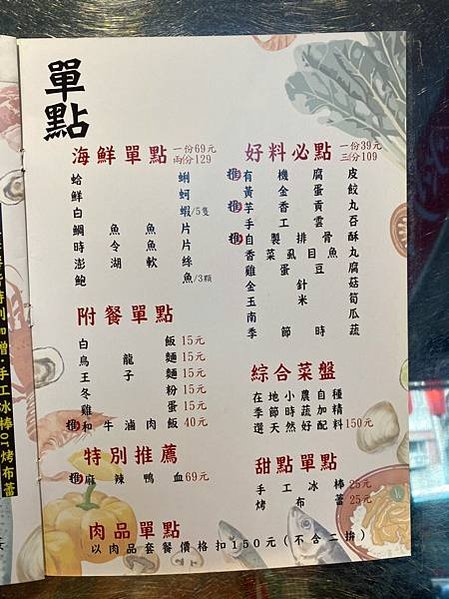 單點
海鮮單點 一份69元 兩份129
蛤蜊
鮮蚵
白蝦/5隻
鯛魚片
時令魚片
澎湖軟絲
鮑魚/3顆
好料必點 一份39元 三份109
推 有機腐皮
黃金蛋餃
推 芋香貢丸
手工雲吞
推 自製排骨酥
香菜虱目魚丸
雞蛋豆腐
金針菇
玉米筍
南瓜
季節時蔬
附餐單點
白飯 15元
烏龍麵 15元
王子麵 15元
冬粉 15元
雞蛋 15元
推 和牛滷肉飯 40元
特別推薦
推 麻辣鴨血69元
綜合菜盤
在地小農自種
季節時蔬加精
選天然好配料150元
甜點單點
手工冰棒25元
烤布蕾25元
肉品單點
以肉品套餐價格扣150元(不含二拚)
特別加贈:手工冰棒or烤布蕾